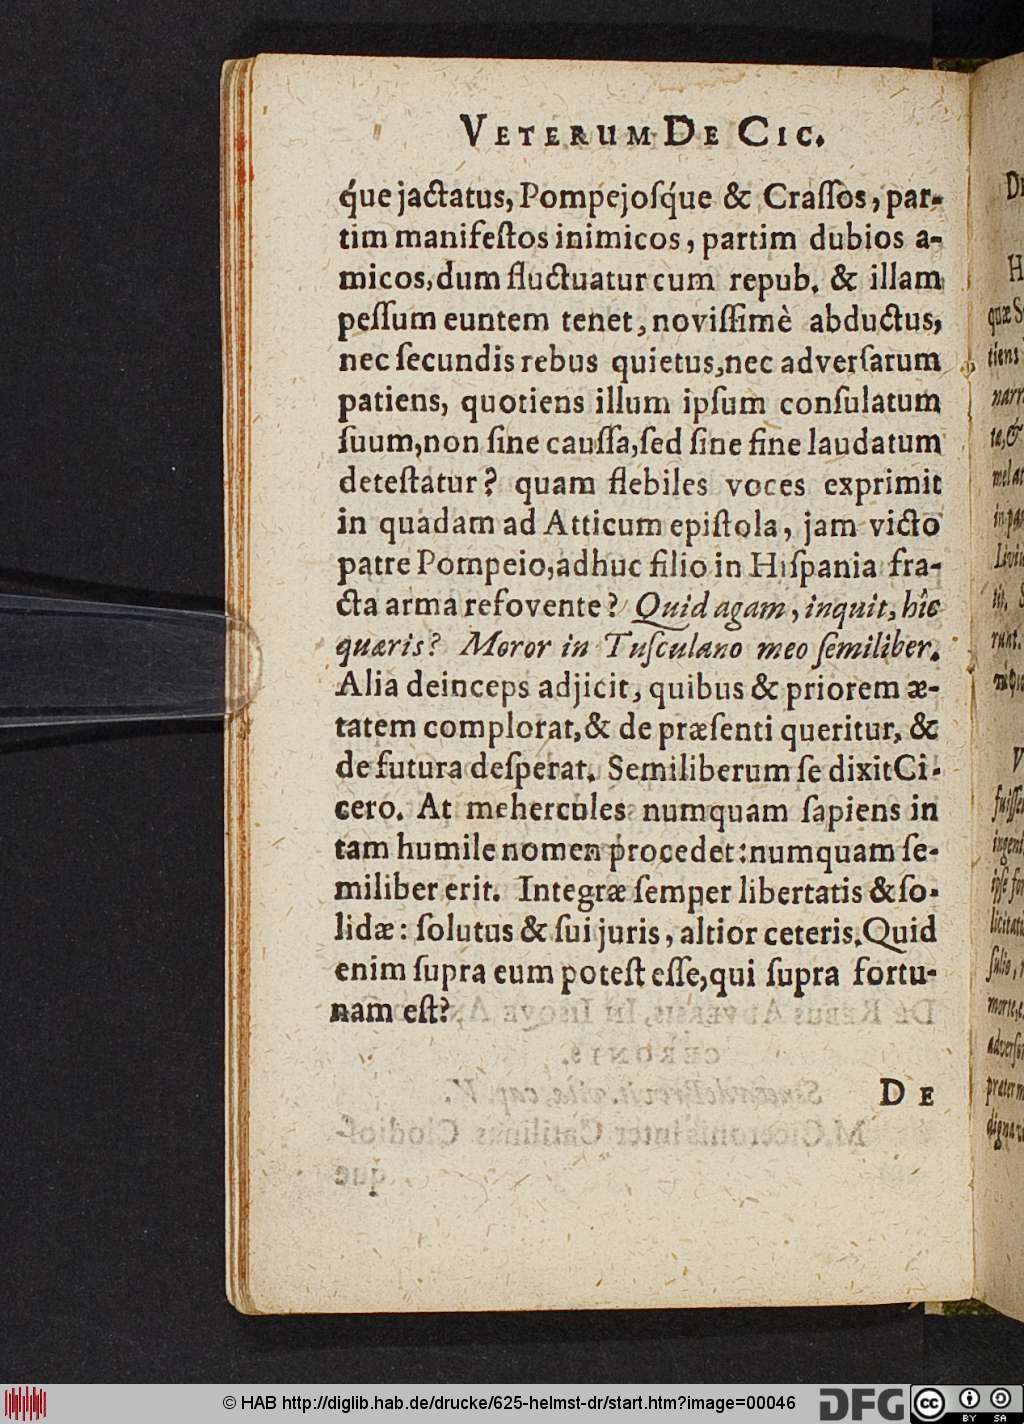 VETERUM DE CIC.
q́ue jactatus, Pompejoſq́ue & Craſſos, par-
tim manifeſtos inimicos, partim dubios a-
micos, dum fluctuatur cum repub. & illam
peſſum euntem tenet, noviſſimè abductus,
nec ſecundis rebus quietus, nec adverſarum
patiens, quotiens illum ipſum conſulatum
ſuum, non ſine cauſſa, ſed ſine fine laudatum
deteſtatur? quam flebiles voces exprimit
in quadam ad Atticum epiſtola, jam victo
patre Pompeio, adhuc filio in Hiſpania fra-
cta arma refovente? Quid agam, inquit, hîc
quæris? Moror in Tuſculano meo ſemiliber.
Alia deinceps adjicit, quibus & priorem æ-
tatem complorat, & de præſenti queritur, &
de futura deſperat. Semiliberum ſe dixit Ci-
cero. At mehercules numquam ſapiens in
tam humile nomen procedet: numquam ſe-
miliber erit. Integræ ſemper libertatis & ſo-
lidæ: ſolutus & ſui juris, altior ceteris. Quid
enim ſupra eum poteſt eſſe, qui ſupra fortu-
nam eſt?
DE
© HAB http://diglib.hab.de/drucke/625-helmst-dr/start.htm?image=00046
DFG
cc
BY SA